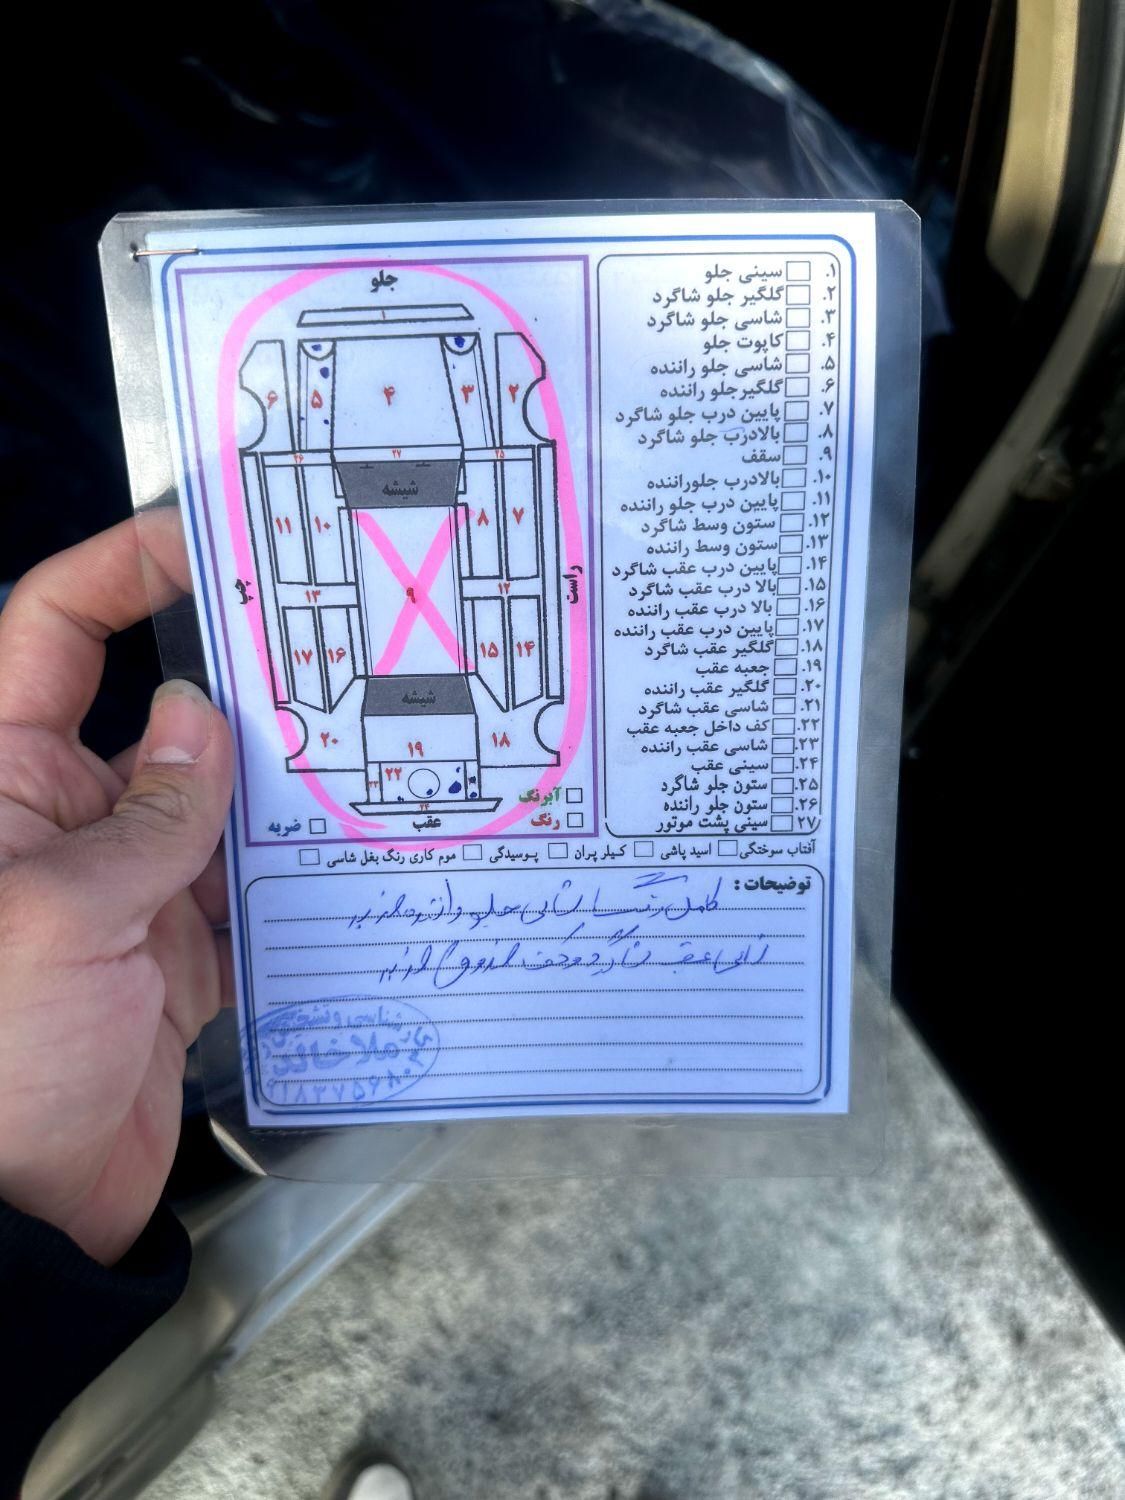 جلو
۱
۶
۵
۴
۳
۲
۲۶
۲۷
۲۵
شیشه
۱۱
۱۰
۸
۷
چپ
۹
راست
۱۳
۱۲
۱۷
۱۶
۱۵
۱۴
شیشه
۲۰
۱۹
۱۸
۲۳
۲۲
۲۴
عقب
آبرنگ
رنگ
ضربه
۱. سینی جلو
۲. گلگیر جلو شاگرد
۳. شاسی جلو شاگرد
۴. کاپوت جلو
۵. شاسی جلو راننده
۶. گلگیرجلو راننده
۷. پایین درب جلو شاگرد
۸. بالادرب جلو شاگرد
۹. سقف
۱۰. بالادرب جلوراننده
۱۱. پایین درب جلو راننده
۱۲. ستون وسط شاگرد
۱۳. ستون وسط راننده
۱۴. پایین درب عقب شاگرد
۱۵. بالا درب عقب شاگرد
۱۶. بالا درب عقب راننده
۱۷. پایین درب عقب راننده
۱۸. گلگیر عقب شاگرد
۱۹. جعبه عقب
۲۰. گلگیر عقب راننده
۲۱. شاسی عقب شاگرد
۲۲. کف داخل جعبه عقب
۲۳. شاسی عقب راننده
۲۴. سینی عقب
۲۵. ستون جلو شاگرد
۲۶. ستون جلو راننده
۲۷. سینی پشت موتور
آفتاب سوختگی اسید پاشی کیلر پران پوسیدگی موم کاری رنگ بغل شاسی
توضیحات :
کامل رنگ جلو
عقب شاگرد و کف صندوق
کارشناسی و تشخیص
ملاخالد